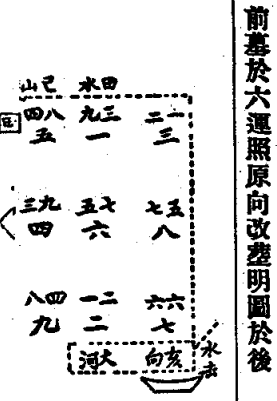 前墓於六運照原向改葬明圖於後
巳山 田水
四八 九三 二一
五 一 三
三九 五七 七五
四 六 八
八四 一二 六六
九 二 七
亥向 大河
水去